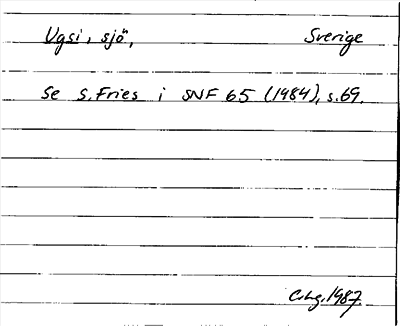 Ugsi, sjö, Sverige
Se S. Fries i SNF 65 (1984), s. 69.
C.Lg. 1987.